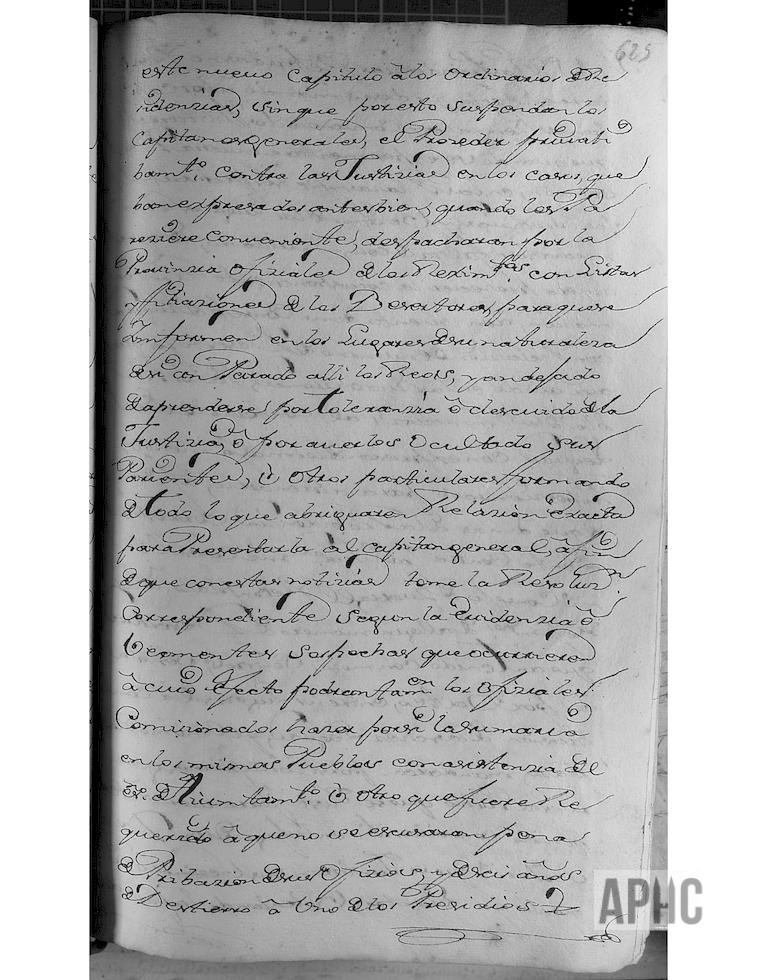 625
este nuevo Capitulo â los Ordinarios de Re
sidenzias, sin que por esto suspendan los
Capitanes generales, el Prozeder privati
bamte. contra las Justizias en los casos, que
ban expresados antes bien, quando les Pa
reziere Conveniente, despacharan por la
Provinzia Ofiziales de los Reximtos. con Listas
y filiaziones de los Desertores, para que se
Informen en los Lugares de su naturaleza
de si an Parado alli los Reos, y an dejado
de aprenderse, por toleranzia ô descuido de la
Justizia, ô por averlos Ocultado sus
Parientes, ô otros particulares formando
de todo lo que abriguaren Relazion exacta
para Presentarla al Capitan general, â fin
de que con estas notizias tome la Resoluzn.
Correspondiente segun la evidenzia ô
Vementes sospechas que ocurrieren
â cuio efecto podran tamvien los Ofiziales
Comisionados hazer por si la sumaria
en los mismos Pueblos con asistenzia del
de Aiuntamto. ô Otro que fuere Re
querido â que no se escusaran pena
de Pribazion de sus Ofizios, y de seis años
de Destierro â Uno de los Presidios
APHC